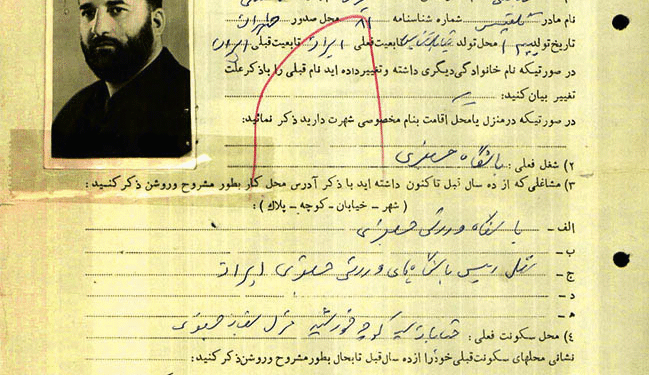 نام مادر شماره شناسنامه محل صدور تهران
تاریخ تولد محل تولد تابعیت فعلی ایران تابعیت قبلی ایران
در صورتیکه نام خانوادگی دیگری داشته و تغییر داده اید نام قبلی را با ذکر علت
تغییر بیان کنید:
در صورتیکه در منزل یا محل اقامت بنام مخصوصی شهرت دارید ذکر نمائید:
۲) شغل فعلی : باشگاه جعفری
۳) مشاغلی که از ده سال قبل تا کنون داشته اید با ذکر آدرس محل کار بطور مشروح و روشن ذکر کنید :
( شهر - خیابان - کوچه - پلاک ) :
الف - باشگاه ورزشی جعفری
ب -
ج - شغل رییس باشگاه‌های ورزشی جعفری ایران
د -
ه -
۴) محل سکونت فعلی : کوچه خورشید منزل
نشانی محلهای سکونت قبلی خود را از ده سال قبل تا بحال بطور مشروح و روشن ذکر کنید: